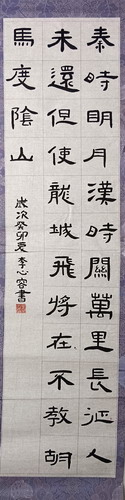 秦時明月漢時關萬里長征人
未還但使龍城飛將在不教胡
馬度陰山
歲次癸卯夏李心容書